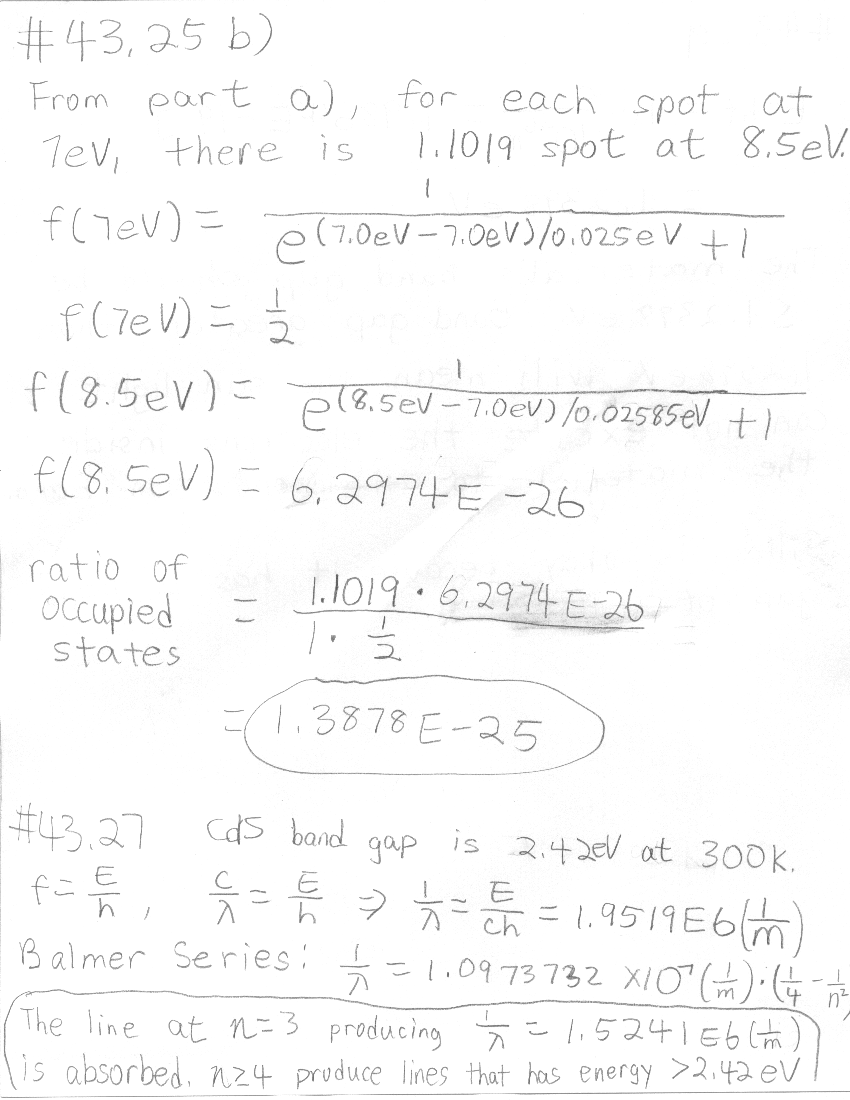 #43,25 b)
From part a), for each spot at
7eV, there is 1.1019 spot at 8.5eV.
f(7eV) = 1 / e^(7.0eV-7.0eV)/0.025eV + 1
f(7eV) = 1/2
f(8.5eV) = 1 / e^(8.5eV-7.0eV)/0.02585eV + 1
f(8.5eV) = 6.2974E-26
ratio of occupied states = 1.1019 · 6.2974E-26 / 1 · 1/2
= 1.3878E-25
#43.27 CdS band gap is 2.42eV at 300K.
f = E/h, c/λ = E/h ⇒ 1/λ = E/ch = 1.9519E6(1/m)
Balmer Series: 1/λ = 1.0973732 ×10^7 (1/m)·(1/4 - 1/n²)
The line at n=3 producing 1/λ = 1.5241E6(1/m)
is absorbed. n≥4 produce lines that has energy >2.42eV